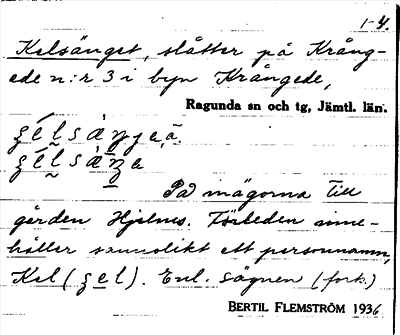 1-4.
Kelsänget, slåtter på Krång-
ede n:r 3 i byn Krångede,
Ragunda sn och tg, Jämtl. län.
På mägorna till
gården Hjelms. Förleden inne-
håller sannolikt ett personnamn,
Kel (gel). Enl. sägnen (forts.)
BERTIL FLEMSTRÖM 1936